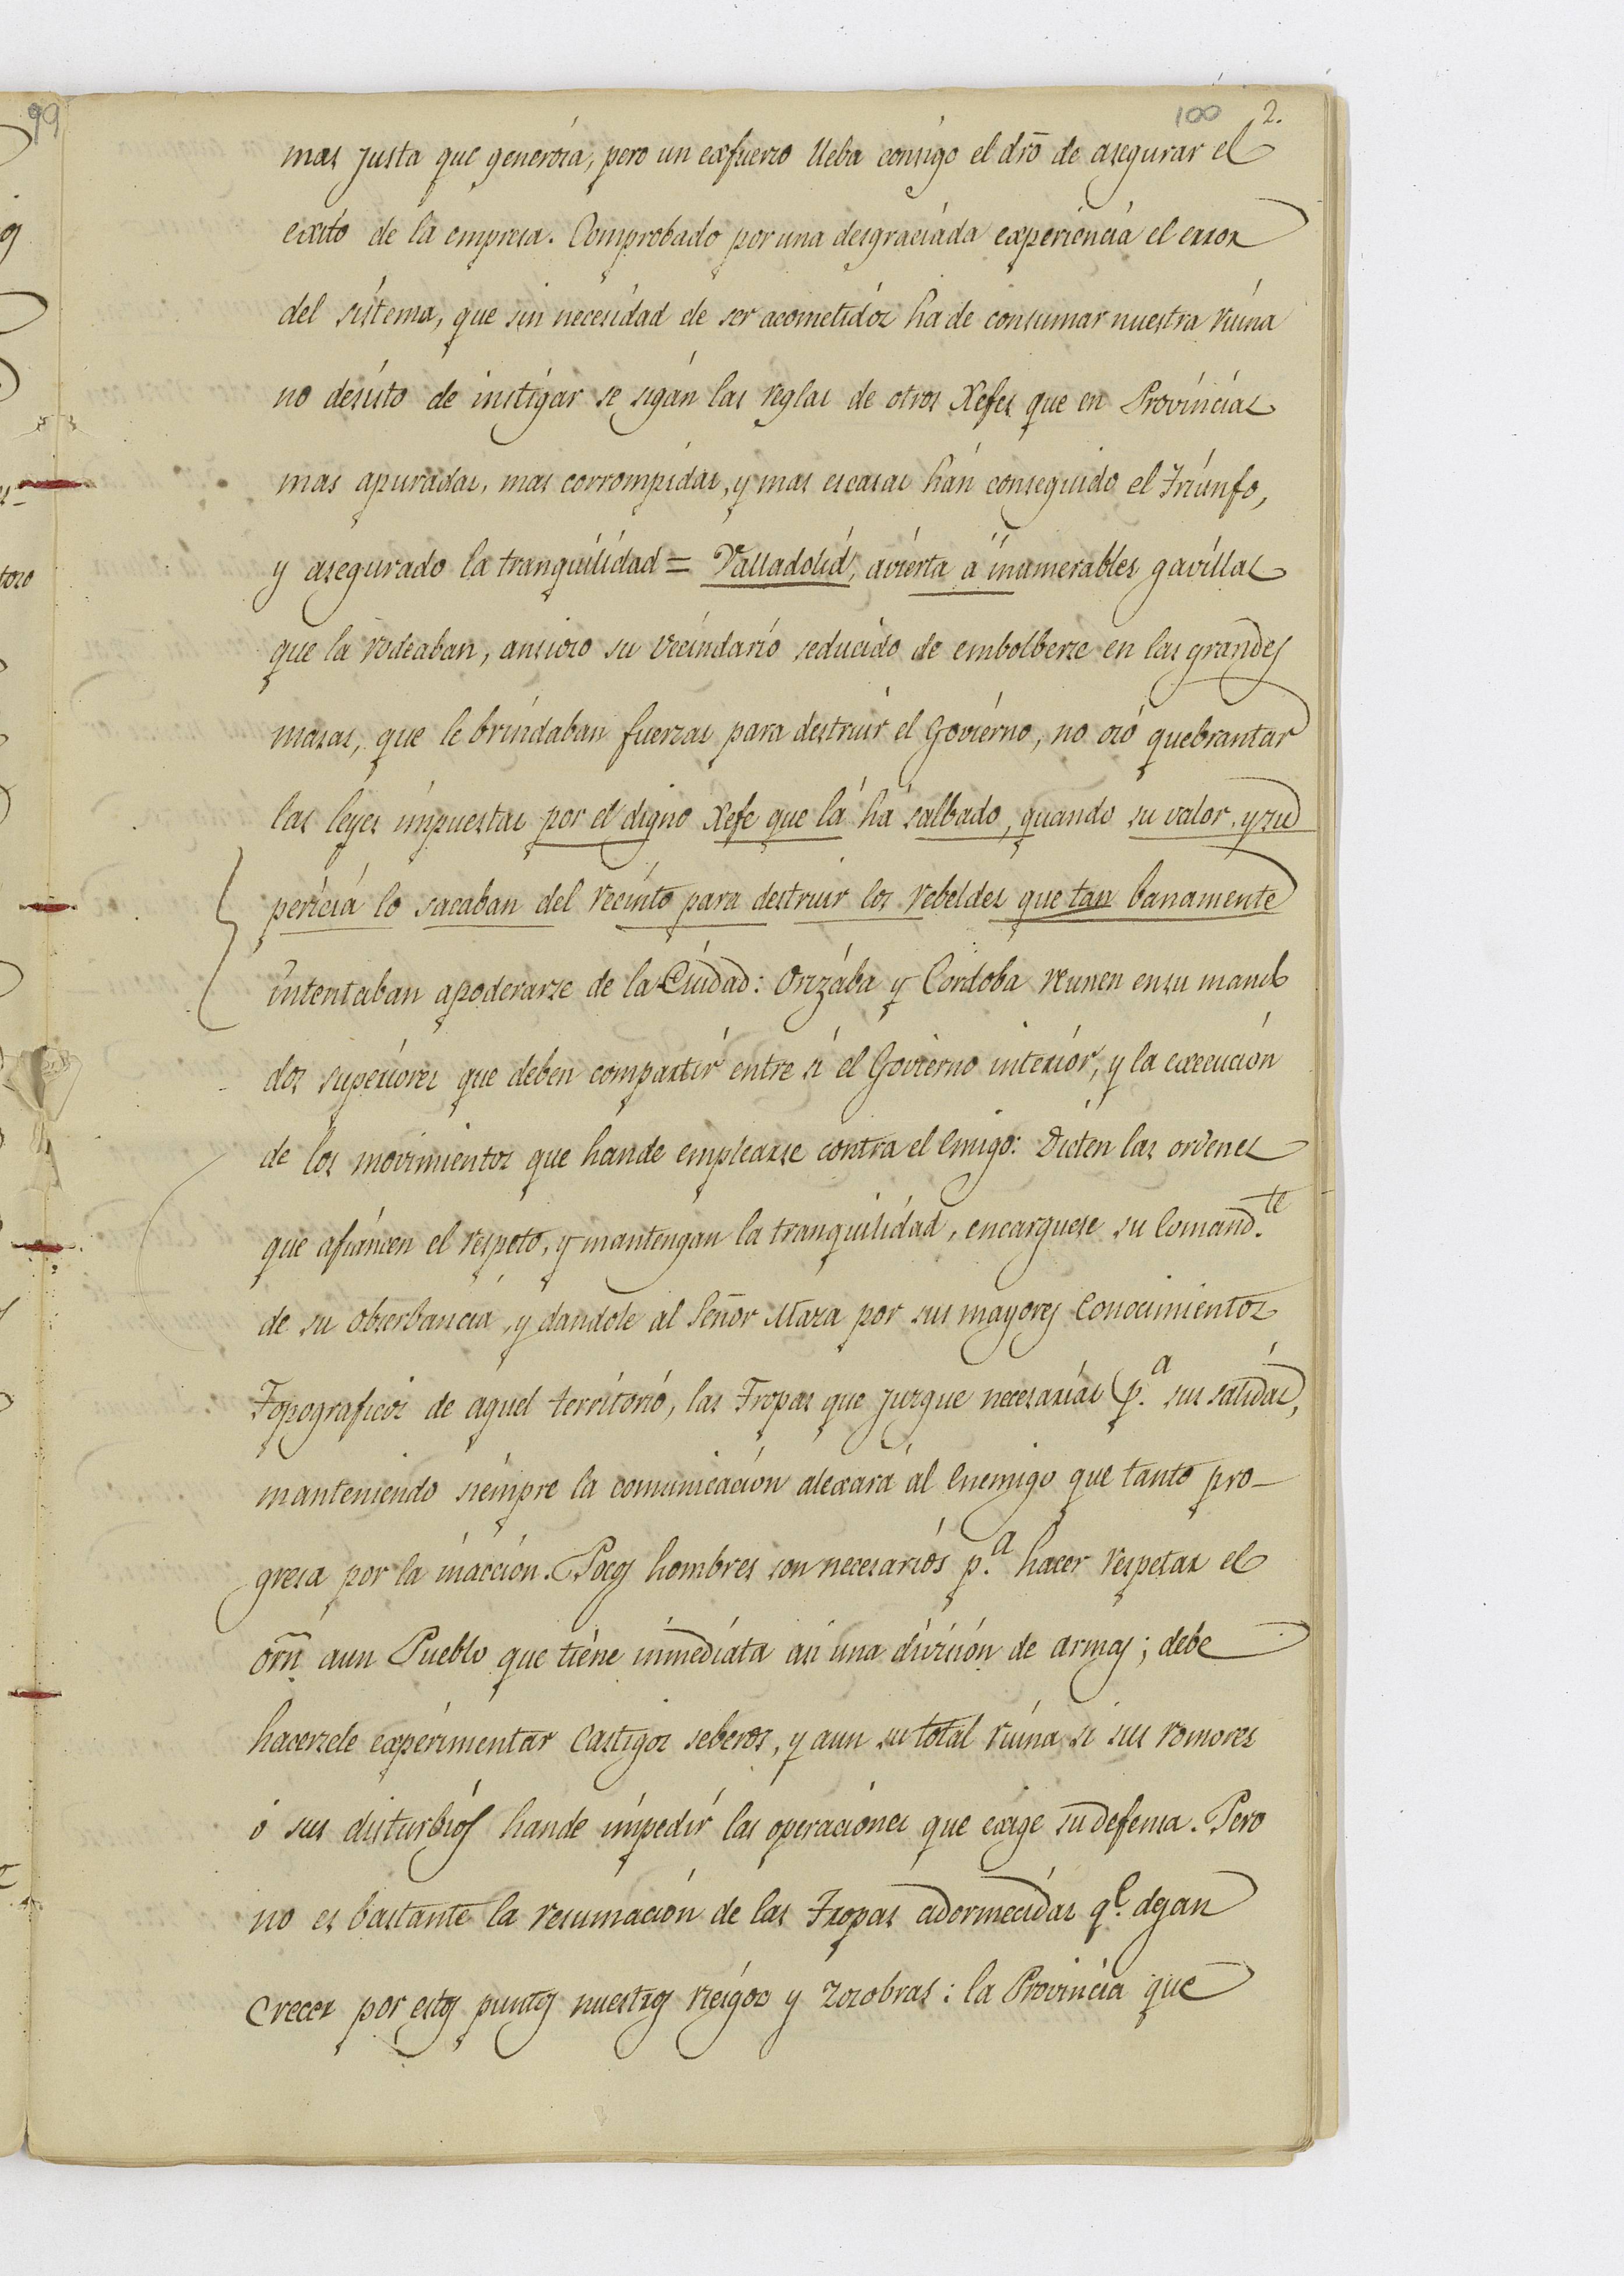 99
100 2.
mas justa que generosa, pero un exfuerzo lleba consigo el dro de asegurar el
exito de la empresa. Comprobado por una desgraciada experiencia el error
del sistema, que sin necesidad de ser acometidos ha de consumar nuestra ruina
no desisto de instigar se sigan las reglas de otros Xefes que en Provincias
mas apuradas, mas corrompidas, y mas escasas hán conseguido el Triunfo,
y asegurado la tranquilidad = Valladolid, avierta á inumerables gavillas
que la rodeaban, ansioso su vecindario seducido de embolberse en las grandes
masas, que le brindaban fuerzas para destruir el Govierno, no osó quebrantar
las leyes impuestas por el digno Xefe que la há salbado, quando su valor, y su
pericia lo sacaban del recinto para destruir los rebeldes que tan banamente
intentaban apoderarse de la Ciudad: Orizába y Cordoba reunen en su mando
dos superiores que deben compartir entre sí el Govierno interior, y la execucion
de los movimientos que hande emplearse contra el Emigo: Dicten las ordenes
que afiancen el respeto, y mantengan la tranquilidad, encarguese su Comand.te
de su obserbancia, y dandole al Señor Maza por sus mayores Conocimientos
Topograficos de aquel territorio, las Tropas que juzgue necesarias p.a sus salidas,
manteniendo siempre la comunicacion alexará al Enemigo que tanto pro-
gresa por la inacción. Pocos hombres son necesarios p.a hacer respetar el
orñ aun Pueblo que tiene inmediata asi una división de armas; debe
hacersele experimentar Castigos seberos, y aun su total ruina si sus romores
ó sus disturbios hande impedir las operaciones que exige su defensa. Pero
no es bastante la reunimación de las Tropas adormecidas q.e dejan
Crecer por estos puntos nuestros riesgos y zozobras: la Provincia que